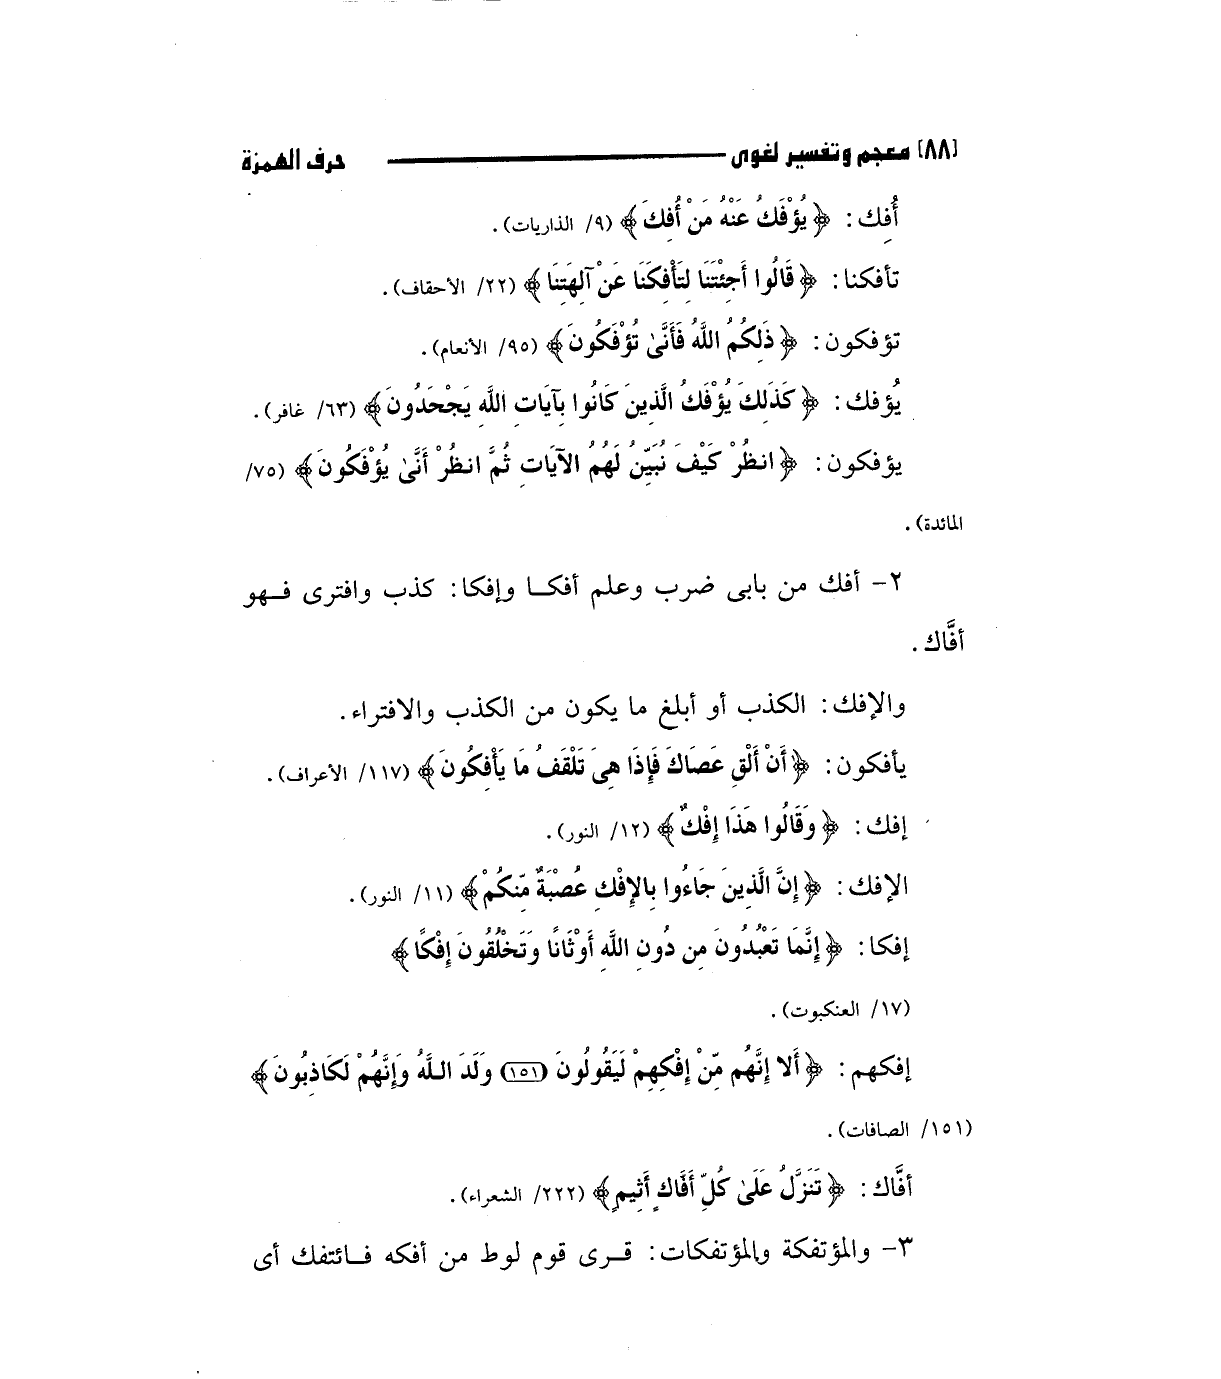 [٨٨] معجم وتفسير لغوى حرف الهمزة
أُفِك: ﴿يُؤْفَكُ عَنْهُ مَنْ أُفِكَ﴾ (٩/ الذاريات).
تأفكنا: ﴿قَالُوا أَجِئْتَنَا لِتَأْفِكَنَا عَنْ آلِهَتِنَا﴾ (٢٢/ الأحقاف).
تؤفكون: ﴿ذَلِكُمُ اللَّهُ فَأَنَّىٰ تُؤْفَكُونَ﴾ (٩٥/ الأنعام).
يُؤفك: ﴿كَذَلِكَ يُؤْفَكُ الَّذِينَ كَانُوا بِآيَاتِ اللَّهِ يَجْحَدُونَ﴾ (٦٣/ غافر).
يؤفكون: ﴿انظُرْ كَيْفَ نُبَيِّنُ لَهُمُ الآيَاتِ ثُمَّ انظُرْ أَنَّىٰ يُؤْفَكُونَ﴾ (٧٥/
المائدة).
٢- أفك من بابى ضرب وعلم أفكـا وإفكا: كذب وافترى فـهو
أفَّاك.
والإفك: الكذب أو أبلغ ما يكون من الكذب والافتراء.
يأفكون: ﴿أَنْ أَلْقِ عَصَاكَ فَإِذَا هِىَ تَلْقَفُ مَا يَأْفِكُونَ﴾ (١١٧/ الأعراف).
إفك: ﴿وَقَالُوا هَذَا إِفْكٌ﴾ (١٢/ النور).
الإفك: ﴿إِنَّ الَّذِينَ جَاءُوا بِالإِفْكِ عُصْبَةٌ مِّنكُمْ﴾ (١١/ النور).
إفكا: ﴿إِنَّمَا تَعْبُدُونَ مِن دُونِ اللَّهِ أَوْثَانًا وَتَخْلُقُونَ إِفْكًا﴾
(١٧/ العنكبوت).
إفكهم: ﴿أَلا إِنَّهُم مِّنْ إِفْكِهِمْ لَيَقُولُونَ (١٥١) وَلَدَ اللَّهُ وَإِنَّهُمْ لَكَاذِبُونَ﴾
(١٥١/ الصافات).
أفَّاك: ﴿تَنَزَّلُ عَلَىٰ كُلِّ أَفَّاكٍ أَثِيمٍ﴾ (٢٢٢/ الشعراء).
٣- والمؤتفكة والمؤتفكات: قـرى قوم لوط من أفكه فـائتفك أى